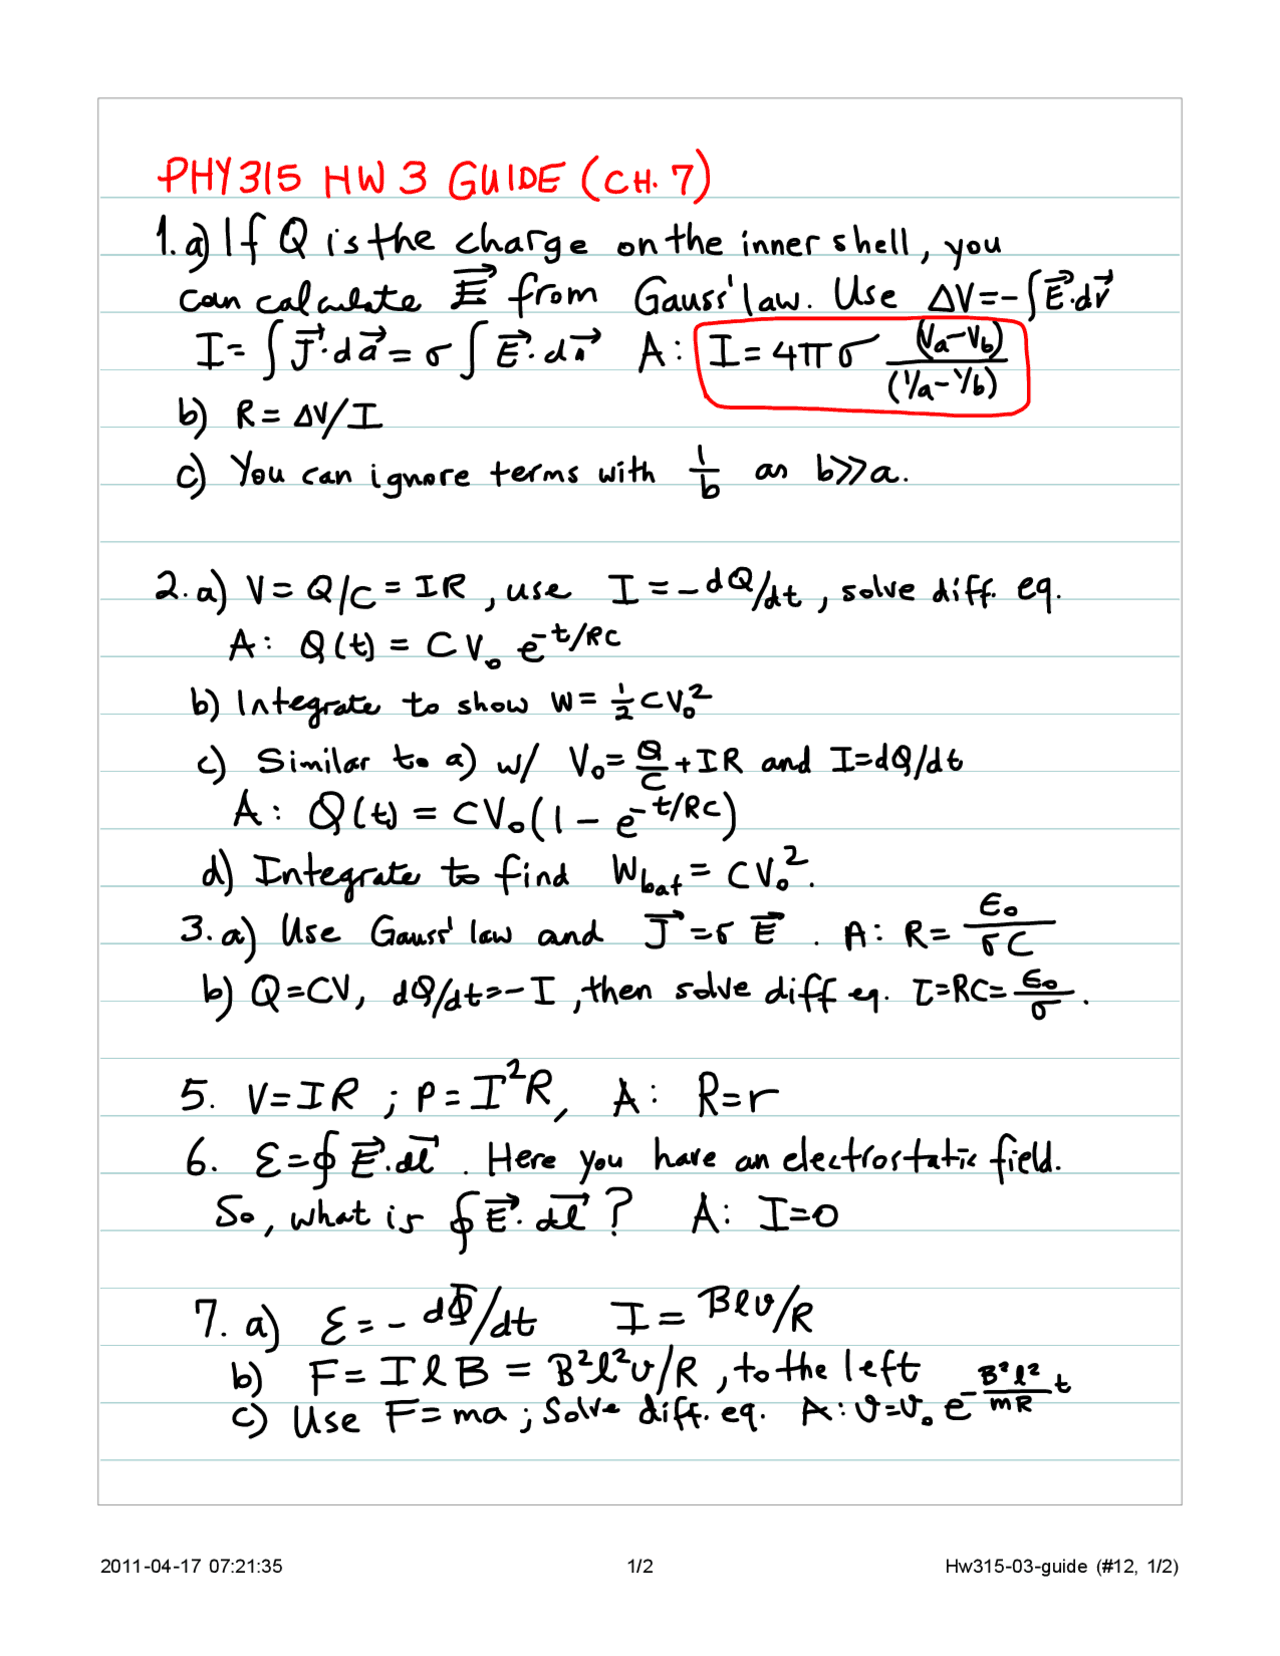 PHY315 HW 3 GUIDE (CH. 7)
1. a) If Q is the charge on the inner shell, you
can calculate E⃗ from Gauss' law. Use ΔV = -∫E⃗·dr⃗
I = ∫J⃗·da⃗ = σ∫E⃗·da⃗ A: I = 4πσ (Va-Vb)/(1/a-1/b)
b) R = ΔV/I
c) You can ignore terms with 1/b as b>>a.
2. a) V = Q/C = IR, use I = -dQ/dt, solve diff. eq.
A: Q(t) = CV₀ e^(-t/RC)
b) Integrate to show W = ½CV₀²
c) Similar to a) w/ V₀ = Q/C + IR and I=dQ/dt
A: Q(t) = CV₀(1 - e^(-t/RC))
d) Integrate to find W_bat = CV₀².
3. a) Use Gauss' law and J⃗ = σE⃗. A: R = ε₀/σC
b) Q=CV, dQ/dt=-I, then solve diff eq. τ=RC=ε₀/σ.
5. V=IR ; P=I²R, A: R=r
6. ℰ=∮E⃗·dl⃗. Here you have an electrostatic field.
So, what is ∮E⃗·dl⃗? A: I=0
7. a) ℰ = -dΦ/dt I = Bℓv/R
b) F = IℓB = B²ℓ²v/R, to the left
c) Use F=ma; Solve diff. eq. A: v=v₀ e^(-(B²ℓ²/mR)t)
2011-04-17 07:21:35 1/2 Hw315-03-guide (#12, 1/2)